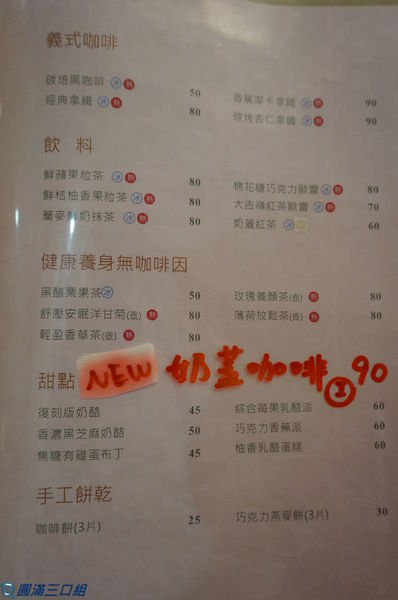 義式咖啡
碳焙黑咖啡 冰 熱 50
經典拿鐵 冰 熱 80
香蕉摩卡拿鐵 冰 熱 90
碳烤杏仁拿鐵 冰 熱 90
飲 料
鮮蘋果粒茶 冰 熱 80
鮮桔柚香果粒茶 冰 熱 80
蕎麥鮮奶抹茶 冰 熱 80
棉花糖巧克力歐蕾 冰 熱 80
大吉嶺紅茶歐蕾 冰 熱 70
奶蓋紅茶 冰 60
健康養身無咖啡因
黑醋栗果茶 冰 50
舒壓安眠洋甘菊(壺) 熱 80
輕盈香草茶(壺) 熱 80
玫瑰養顏茶(壺) 熱 80
薄荷放鬆茶(壺) 熱 80
甜點 NEW 奶蓋咖啡 90
復刻版奶酪 45
香濃黑芝麻奶酪 50
焦糖有雞蛋布丁 45
綜合莓果乳酪派 60
巧克力香蕉派 60
柚香乳酪蛋糕 60
手工餅乾
咖啡餅(3片) 25
巧克力燕麥餅(3片) 30
圓滿三口組